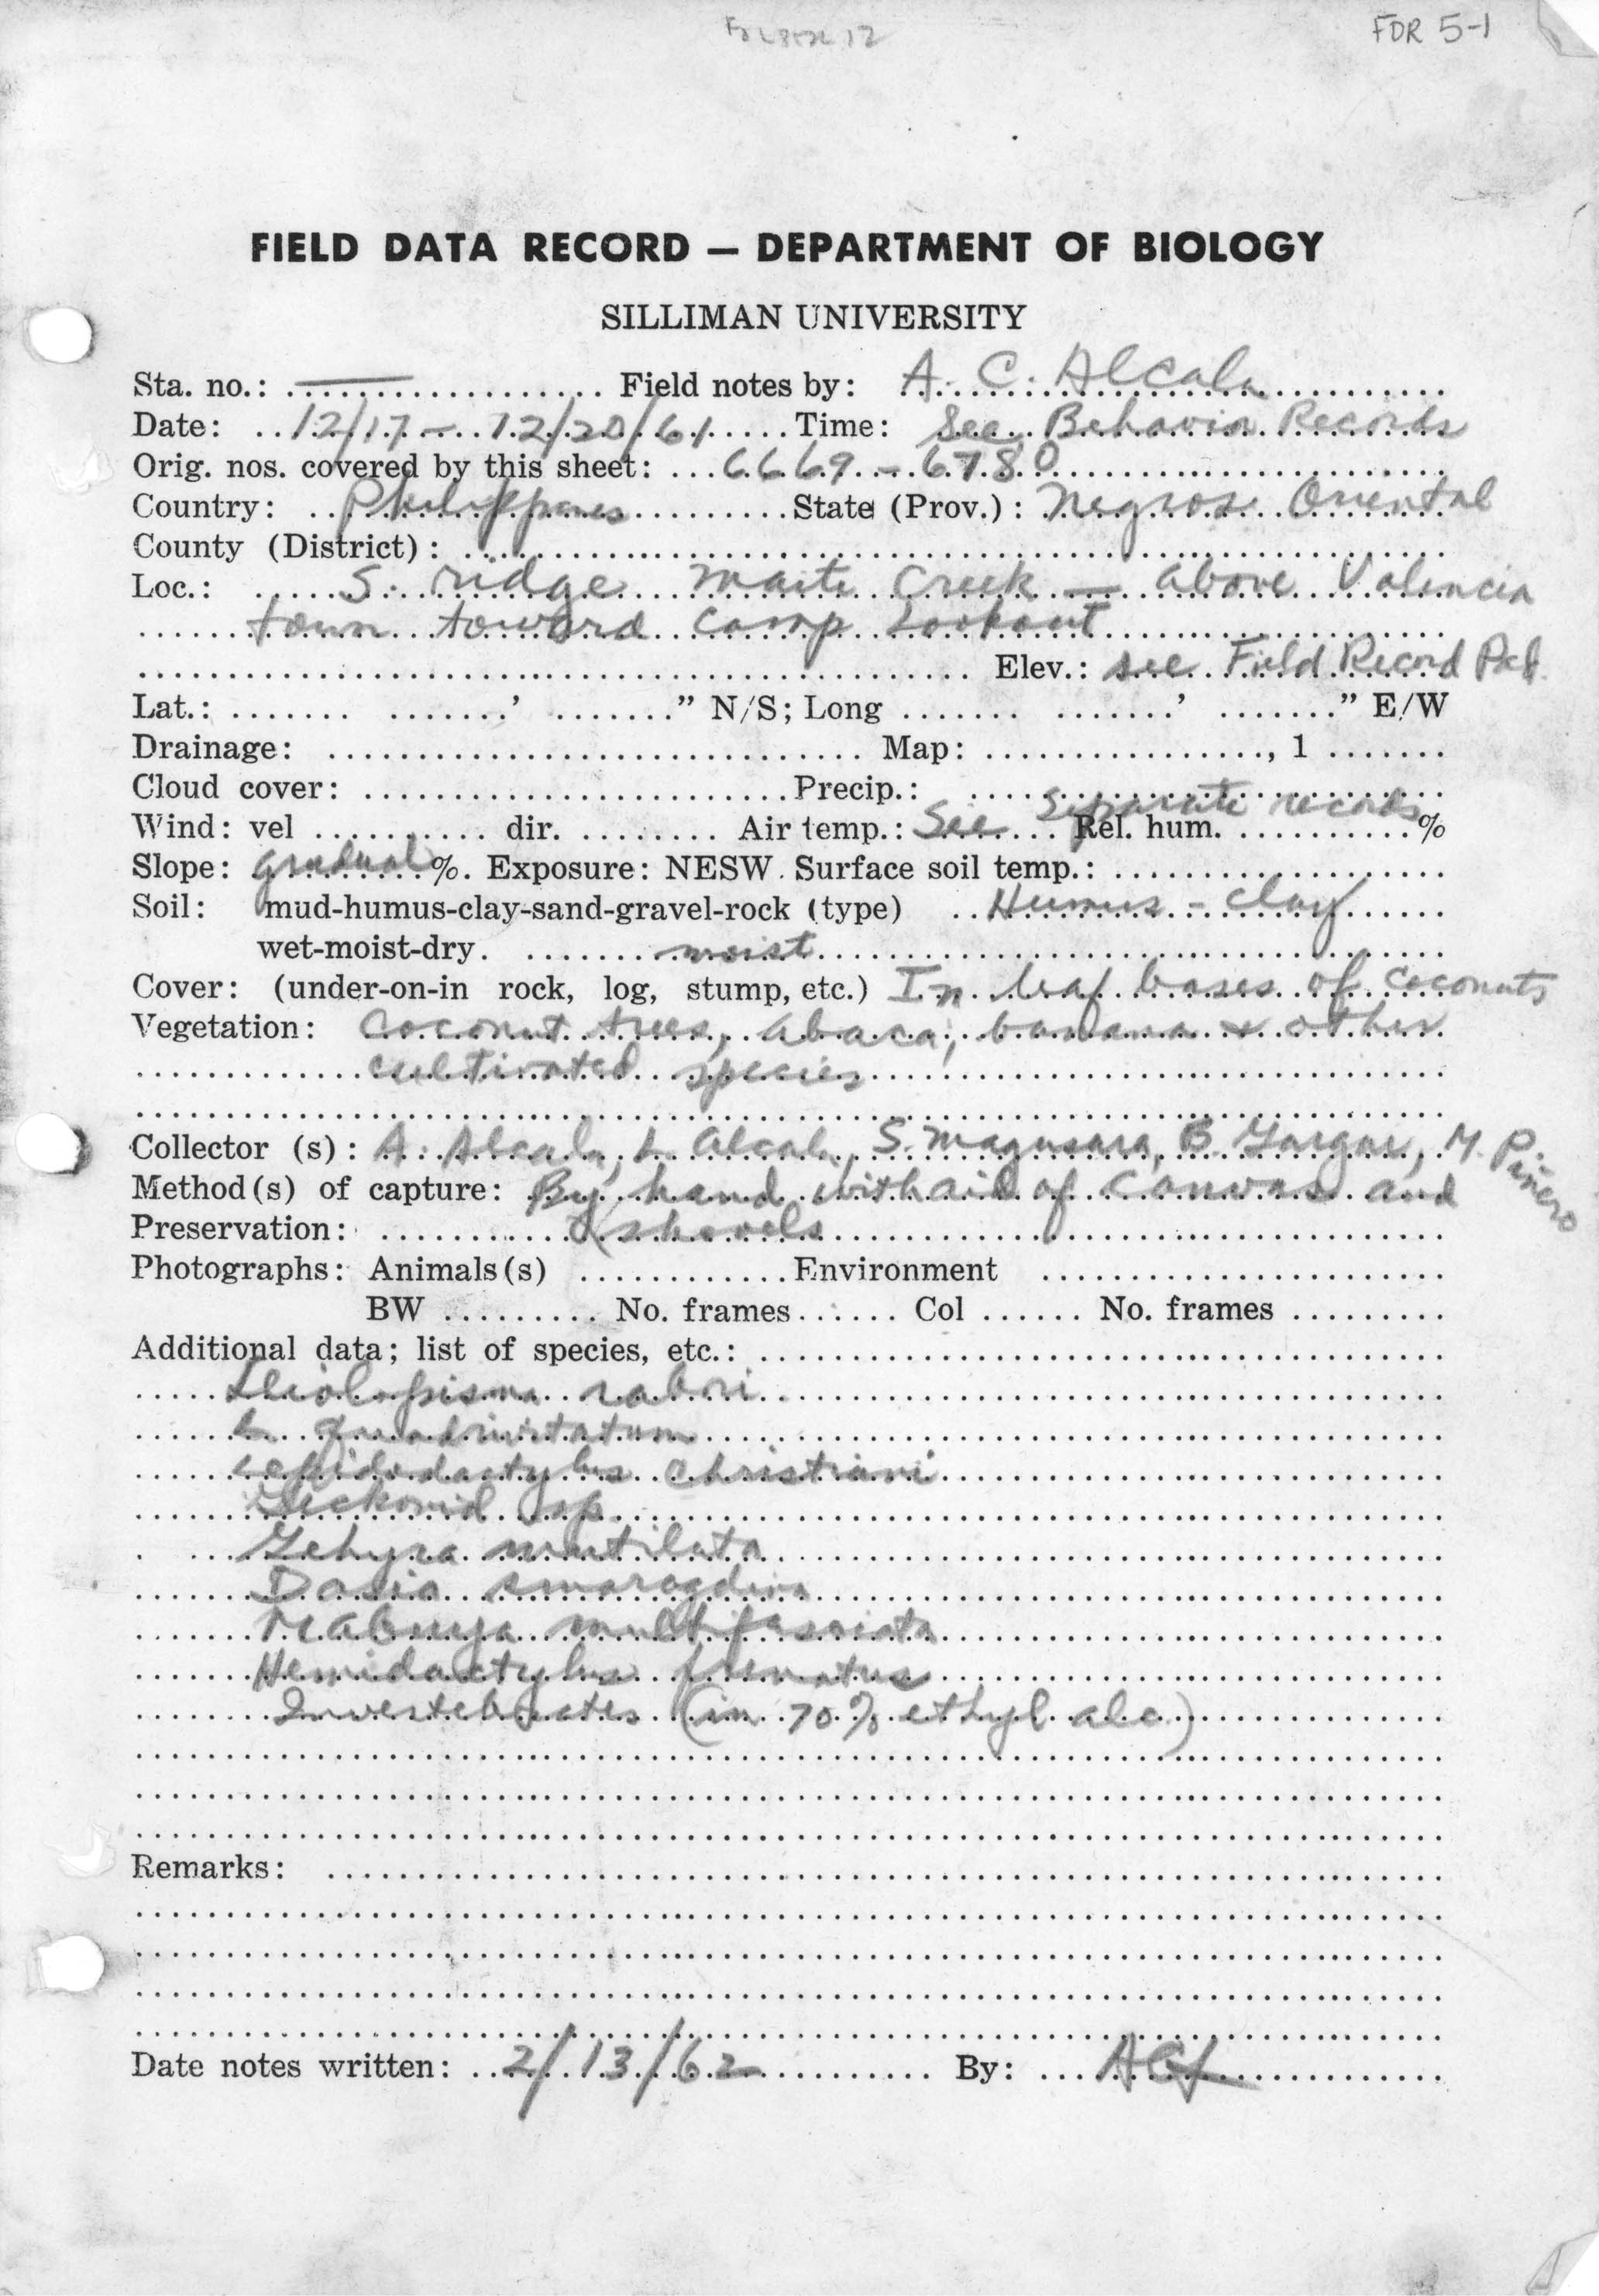 FDR 5-1
FIELD DATA RECORD — DEPARTMENT OF BIOLOGY
SILLIMAN UNIVERSITY
Sta. no.: — Field notes by: A. C. Alcala
Date: 12/17 - 12/20/61 Time: See Behavior Records
Orig. nos. covered by this sheet: 6669 - 6780
Country: Philippines State (Prov.): Negros Oriental
County (District):
Loc.: S. ridge Maite Creek — above Valencia
town toward Camp Lookout
Elev.: see Field Record
Lat.: ' " N/S; Long ' " E/W
Drainage: Map: , 1
Cloud cover: Precip.:
Wind: vel dir. Air temp.: See separate records Rel. hum. %
Slope: gradual %. Exposure: NESW. Surface soil temp.:
Soil: mud-humus-clay-sand-gravel-rock (type) Humus - clay
wet-moist-dry. moist
Cover: (under-on-in rock, log, stump, etc.) In leaf bases of coconuts
Vegetation: Coconut trees, abaca, banana & other
cultivated species
Collector (s): A. Alcala, L. Alcala, S. Magusara, B. Gargar, M. Pinero
Method(s) of capture: By hand with aid of canvas and
Preservation: shovels
Photographs: Animals(s) Environment
BW No. frames Col No. frames
Additional data; list of species, etc.:
Leiolopisma rabori
L. quadrivittatum
Lepidodactylus christiani
Geckonid sp.
Gehyra mutilata
Dasia smaragdina
Mabuya multifasciata
Hemidactylus frenatus
Invertebrates (in 70% ethyl alc.)
Remarks:
Date notes written: 2/13/62 By: ACA